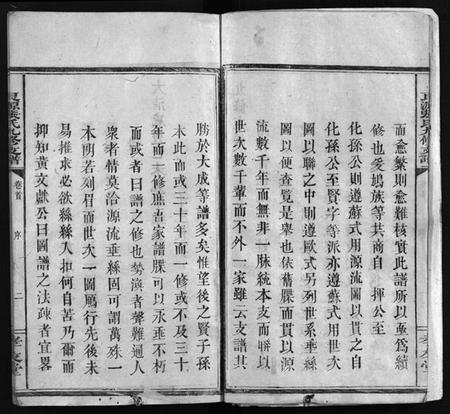 而愈繁則愈難核實此譜所以亟爲續
修也爰塢族等共商自 揮公至
化孫公則遵蘇式用源流圖以貫之自
化孫公至賢字等派亦遵蘇式用世次
以聯之中則遵歐式另列世系垂絲
以便查覽是舉也依舊牒而貫以源
流數千年而無非一脉統本支而聯以
世次數千輩而不外一家雖云支譜其
勝於大成等譜多矣惟望後之賢子孫
未此而或三十年而一修或不及三十
年而一修庶吾家譜牒可以永垂不朽
而或者曰譜之修也勢渙者聲難週人
衆者情莫洽源流垂絲固可謂萬殊一
本明若列眉而世次一圖駕行先後未
易推求必欲絲絲人扣何自苦乃爾而
抑知黃文獻公曰圖譜之法疎者宜畧
東源張氏九修支譜
卷首
序
二
孝友堂